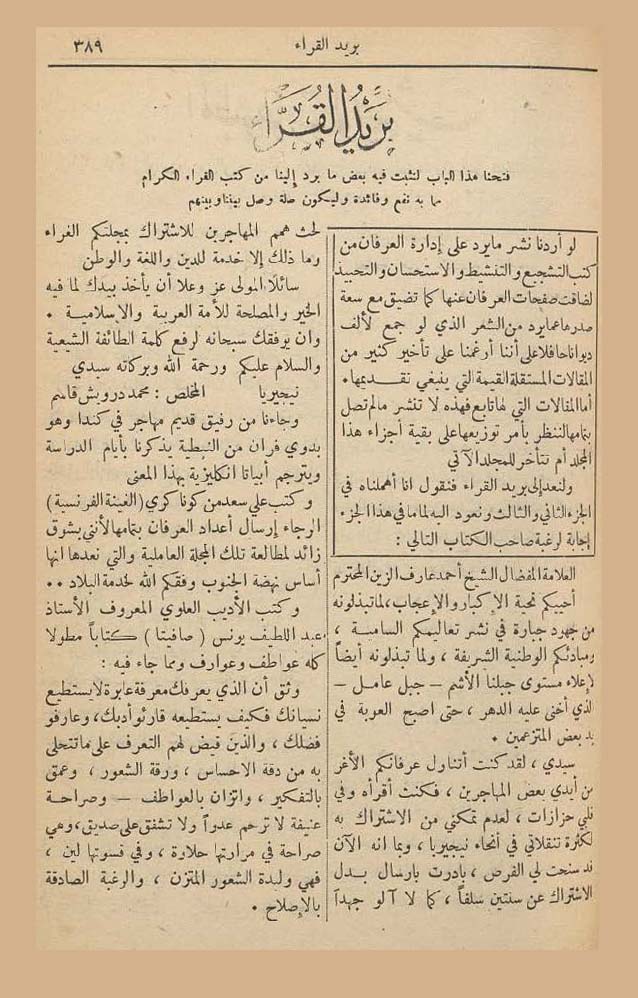 بريد القراء
٣٨٩
بَرِيْدُ القُرَّاء
فتحنا هذا الباب لنثبت فيه بعض ما يرد إلينا من كتب القراء الكرام
مما به نفع وفائدة وليكون صلة وصل بيننا وبينهم
لو أردنا نشر ما يرد على إدارة العرفان من
كتب التشجيع والتنشيط والاستحسان والتحبيذ
لضاقت صفحات العرفان عنها كما تضيق مع سعة
صدرها عما يرد من الشعر الذي لو جمع لألف
ديوانا حافلا على أننا أرغمنا على تأخير كثير من
المقالات المستقلة القيمة التي ينبغي تقديمها .
أما المقالات التي لها تابع فهذه لا تنشر مالم تصل
بتمامها لننظر بأمر توزيعها على بقية أجزاء هذا
المجلد أم تتأخر للمجلد الآتي
ولنعد إلى بريد القراء فنقول انا أهملناه في
الجزء الثاني والثالث ونعود اليه لماما في هذا الجزء
إجابة لرغبة صاحب الكتاب التالي :
العلامة المفضال الشيخ أحمد عارف الزين المحترم
أحييكم تحية الإكبار والإعجاب ، لما تبذلونه
من جهود جبارة في نشر تعاليمكم السامية ،
ومبادئكم الوطنية الشريفة ، ولما تبذلونه أيضاً
لإعلاء مستوى جبلنا الأشم – جبل عامل –
الذي أخنى عليه الدهر ، حتى اصبح العوبة في
يد بعض المتزعمين .
سيدي ، لقد كنت أتناول عرفانكم الأغر
من أيدي بعض المهاجرين ، فكنت أقرأه وفي
قلبي حزازات ، لعدم تمكني من الاشتراك به
لكثرة تنقلاتي في أنحاء نيجيريا ، وبما انه الآن
قد سنحت لي الفرص ، بادرت بارسال بدل
الاشتراك عن سنتين سلفاً ، كما لا آلو جهداً
لحث همم المهاجرين للاشتراك بمجلتكم الغراء
وما ذلك إلا خدمة للدين واللغة والوطن
سائلا المولى عز وعلا أن يأخذ بيدك لما فيه
الخير والمصلحة للأمة العربية والاسلامية .
وان يوفقك سبحانه لرفع كلمة الطائفة الشيعية
والسلام عليكم ورحمة الله وبركاته سيدي
نيجيريا المخلص : محمد درويش قاسم
وجاءنا من رفيق قديم مهاجر في كندا وهو
بدوي فران من النبطية يذكرنا بأيام الدراسة
ويترجم أبياتا انكليزية بهذا المعنى
وكتب علي سعد من كوناكري (الغينة الفرنسية)
الرجاء إرسال أعداد العرفان بتمامها لأنني بشوق
زائد لمطالعة تلك المجلة العاملية والتي نعدها انها
أساس نهضة الجنوب وفقكم الله لخدمة البلاد ..
وكتب الأديب العلوي المعروف الأستاذ
عبد اللطيف يونس ( صافيتا ) كتاباً مطولا
كله عواطف وعوارف ومما جاء فيه :
وثق أن الذي يعرفك معرفة عابرة لا يستطيع
نسيانك فكيف يستطيعه قارئو أدبك ، وعارفو
فضلك ، والذين قيض لهم التعرف على ما تتحلى
به من دقة الاحساس ، ورقة الشعور ، وعمق
بالتفكير ، واتزان بالعواطف – وصراحة
عنيفة لا ترحم عدواً ولا تشفق على صديق ، وهي
صراحة في مرارتها حلاوة ، وفي قسوتها لين ،
فهي وليدة الشعور المتزن ، والرغبة الصادقة
بالإصلاح .